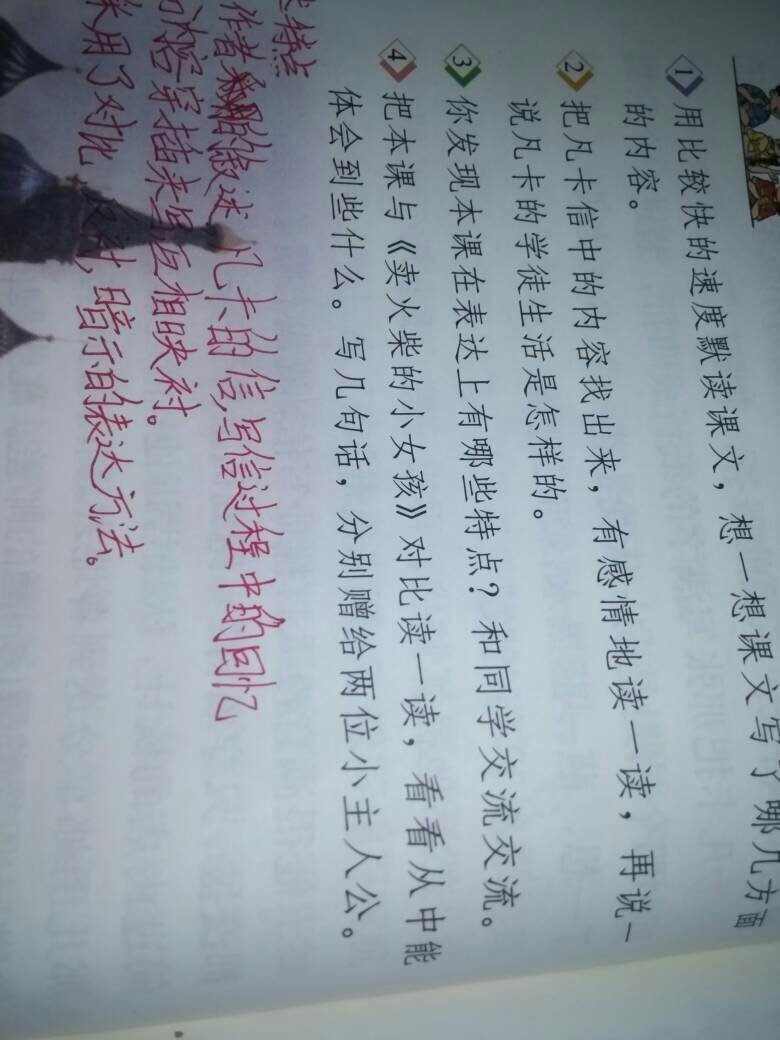 1 用比较快的速度默读课文，想一想课文写了哪几方面
的内容。
2 把凡卡信中的内容找出来，有感情地读一读，再说一
说凡卡的学徒生活是怎样的。
3 你发现本课在表达上有哪些特点？和同学交流交流。
4 把本课与《卖火柴的小女孩》对比读一读，看看从中能
体会到些什么。写几句话，分别赠给两位小主人公。
特点
作者 叙述 凡卡的信，写信过程中的回忆
内容穿插来写互相映衬。
采用了对比，反衬，暗示的表达方法。